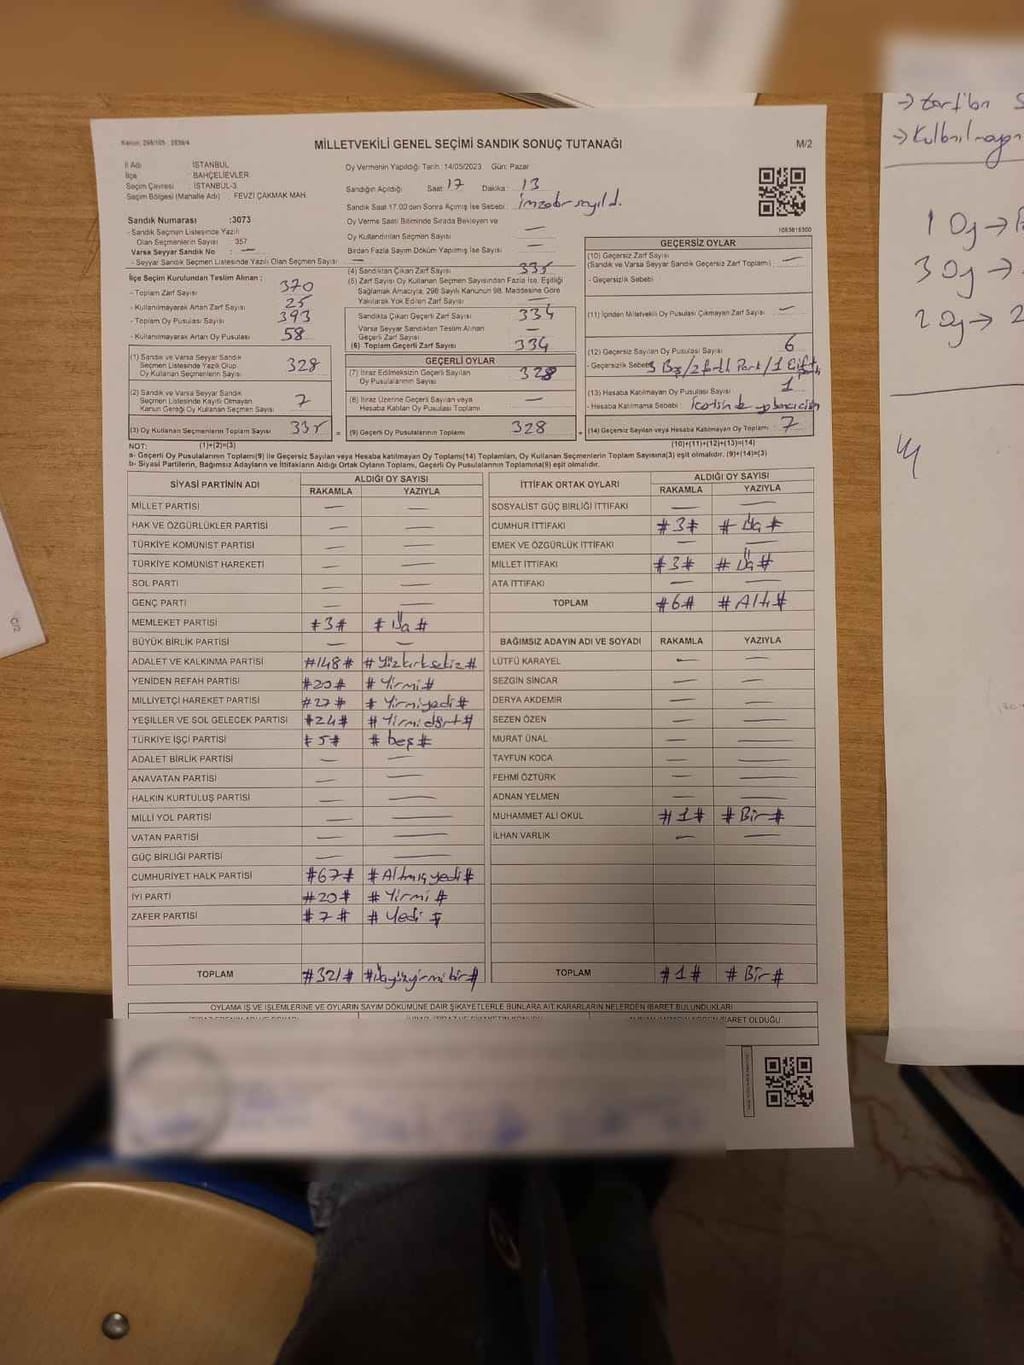 Kanun: 298/105 2839/4
MİLLETVEKİLİ GENEL SEÇİMİ SANDIK SONUÇ TUTANAĞI
M/2
İl Adı : İSTANBUL
İlçe : BAHÇELİEVLER
Seçim Çevresi : İSTANBUL-3
Seçim Bölgesi (Mahalle Adı) : FEVZİ ÇAKMAK MAH.
Sandık Numarası :3073
- Sandık Seçmen Listesinde Yazılı
Olan Seçmenlerin Sayısı : 357
Varsa Seyyar Sandık No : —
- Seyyar Sandık Seçmen Listesinde Yazılı Olan Seçmen Sayısı : —
İlçe Seçim Kurulundan Teslim Alınan ;
- Toplam Zarf Sayısı : 370
- Kullanılmayarak Artan Zarf Sayısı : 25
- Toplam Oy Pusulası Sayısı : 393
- Kullanılmayarak Artan Oy Pusulası : 58
(1) Sandık ve Varsa Seyyar Sandık
Seçmen Listesinde Yazılı Olup
Oy Kullanan Seçmenlerin Sayısı : 328
(2) Sandık ve Varsa Seyyar Sandık
Seçmen Listesinde Kayıtlı Olmayan
Kanun Gereği Oy Kullanan Seçmen Sayısı : 7
(3) Oy Kullanan Seçmenlerin Toplam Sayısı : 335
(1)+(2)=(3)
Oy Vermenin Yapıldığı Tarih :14/05/2023 Gün: Pazar
Sandığın Açıldığı Saat : 17 Dakika : 13
Sandık Saat 17.00'den Sonra Açılmış İse Sebebi : İmzalar sayıldı.
Oy Verme Saati Bitiminde Sırada Bekleyen ve
Oy Kullandırılan Seçmen Sayısı : —
Birden Fazla Sayım Döküm Yapılmış İse Sayısı : —
(4) Sandıktan Çıkan Zarf Sayısı : 335
(5) Zarf Sayısı Oy Kullanan Seçmen Sayısından Fazla İse, Eşitliği
Sağlamak Amacıyla; 298 Sayılı Kanunun 98. Maddesine Göre
Yakılarak Yok Edilen Zarf Sayısı : —
Sandıkta Çıkan Geçerli Zarf Sayısı : 334
Varsa Seyyar Sandıktan Teslim Alınan
Geçerli Zarf Sayısı : —
(6) Toplam Geçerli Zarf Sayısı : 334
GEÇERLİ OYLAR
(7) İtiraz Edilmeksizin Geçerli Sayılan
Oy Pusulalarının Sayısı : 328
(8) İtiraz Üzerine Geçerli Sayılan veya
Hesaba Katılan Oy Pusulası Toplamı : —
= (9) Geçerli Oy Pusulalarının Toplamı : 328
1083618300
GEÇERSİZ OYLAR
(10) Geçersiz Zarf Sayısı
(Sandık ve Varsa Seyyar Sandık Geçersiz Zarf Toplamı) : —
- Geçersizlik Sebebi :
(11) İçinden Milletvekili Oy Pusulası Çıkmayan Zarf Sayısı : —
(12) Geçersiz Sayılan Oy Pusulası Sayısı : 6
- Geçersizlik Sebebi : 3 Boş/2 farklı Parti/1 Çift
(13) Hesaba Katılmayan Oy Pusulası Sayısı : 1
- Hesaba Katılmama Sebebi :
+ (14) Geçersiz Sayılan veya Hesaba Katılmayan Oy Toplamı : 7
(10)+(11)+(12)+(13)=(14)
NOT:
a- Geçerli Oy Pusulalarının Toplamı(9) ile Geçersiz Sayılan veya Hesaba Katılmayan Oy Toplamı(14) Toplamları, Oy Kullanan Seçmenlerin Toplam Sayısına(3) eşit olmalıdır. (9)+(14)=(3)
b- Siyasi Partilerin, Bağımsız Adayların ve İttifakların Aldığı Ortak Oyların Toplamı, Geçerli Oy Pusulalarının Toplamına(9) eşit olmalıdır.
SİYASİ PARTİNİN ADI
ALDIĞI OY SAYISI
RAKAMLA YAZIYLA
MİLLET PARTİSİ — —
HAK VE ÖZGÜRLÜKLER PARTİSİ — —
TÜRKİYE KOMÜNİST PARTİSİ — —
TÜRKİYE KOMÜNİST HAREKETİ — —
SOL PARTİ — —
GENÇ PARTİ — —
MEMLEKET PARTİSİ #3# #Üç#
BÜYÜK BİRLİK PARTİSİ — —
ADALET VE KALKINMA PARTİSİ #148# #Yüzkırksekiz#
YENİDEN REFAH PARTİSİ #20# #Yirmi#
MİLLİYETÇİ HAREKET PARTİSİ #27# #Yirmiyedi#
YEŞİLLER VE SOL GELECEK PARTİSİ #24# #Yirmidört#
TÜRKİYE İŞÇİ PARTİSİ #5# #beş#
ADALET BİRLİK PARTİSİ — —
ANAVATAN PARTİSİ — —
HALKIN KURTULUŞ PARTİSİ — —
MİLLİ YOL PARTİSİ — —
VATAN PARTİSİ — —
GÜÇ BİRLİĞİ PARTİSİ — —
CUMHURİYET HALK PARTİSİ #67# #Altmışyedi#
İYİ PARTİ #20# #Yirmi#
ZAFER PARTİSİ #7# #Yedi#
TOPLAM #321# #Üçyüzyirmibir#
İTTİFAK ORTAK OYLARI
ALDIĞI OY SAYISI
RAKAMLA YAZIYLA
SOSYALİST GÜÇ BİRLİĞİ İTTİFAKI — —
CUMHUR İTTİFAKI #3# #Üç#
EMEK VE ÖZGÜRLÜK İTTİFAKI — —
MİLLET İTTİFAKI #3# #Üç#
ATA İTTİFAKI — —
TOPLAM #6# #Altı#
BAĞIMSIZ ADAYIN ADI VE SOYADI RAKAMLA YAZIYLA
LÜTFÜ KARAYEL — —
SEZGİN SİNCAR — —
DERYA AKDEMİR — —
SEZEN ÖZEN — —
MURAT ÜNAL — —
TAYFUN KOCA — —
FEHMİ ÖZTÜRK — —
ADNAN YELMEN — —
MUHAMMET ALİ OKUL #1# #Bir#
İLHAN VARLIK — —
TOPLAM #1# #Bir#
OYLAMA İŞ VE İŞLEMLERİNE VE OYLARIN SAYIM DÖKÜMÜNE DAİR ŞİKAYETLERLE BUNLARA AİT KARARLARIN NELERDEN İBARET BULUNDUKLARI
1 Oy →
3 Oy →
2 Oy → 2